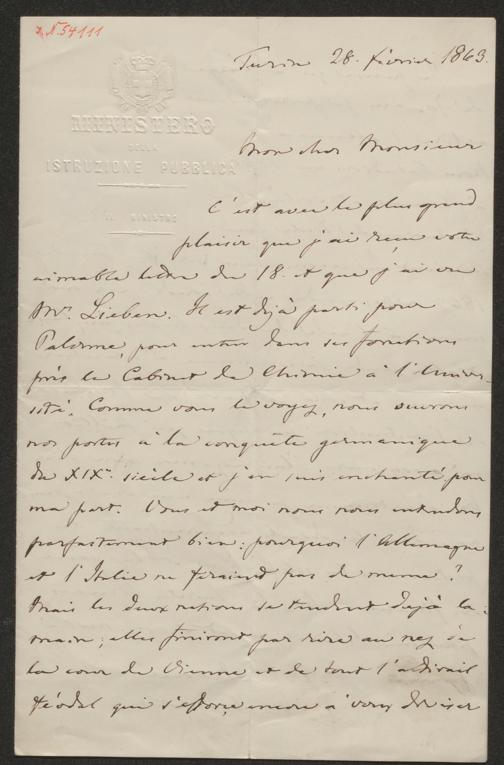 N. 54111
Turin 28. février 1863.
MINISTERO
DELLA
ISTRUZIONE PUBBLICA
IL MINISTRO
Mon cher Monsieur
C'est avec le plus grand
plaisir que j'ai reçu votre
aimable lettre du 18. et que j'ai vu
Mr. Lieben. Il est déjà parti pour
Palerme, pour entrer dans ses fonctions
près le Cabinet de Chimie à l'Univer-
sité. Comme vous le voyez, nous ouvrons
nos portes à la conquête germanique
du XIXe. siècle et j'en suis enchanté pour
ma part. Vous et moi nous nous entendons
parfaitement bien: pourquoi l'Allemagne
et l'Italie ne feraient pas de meme?
Mais les deux nations se tendent déjà la
main; elles finiront par rire au nez de
la cour de Vienne et de tout l'attirail
féodal qui s'efforce encore à vous diviser